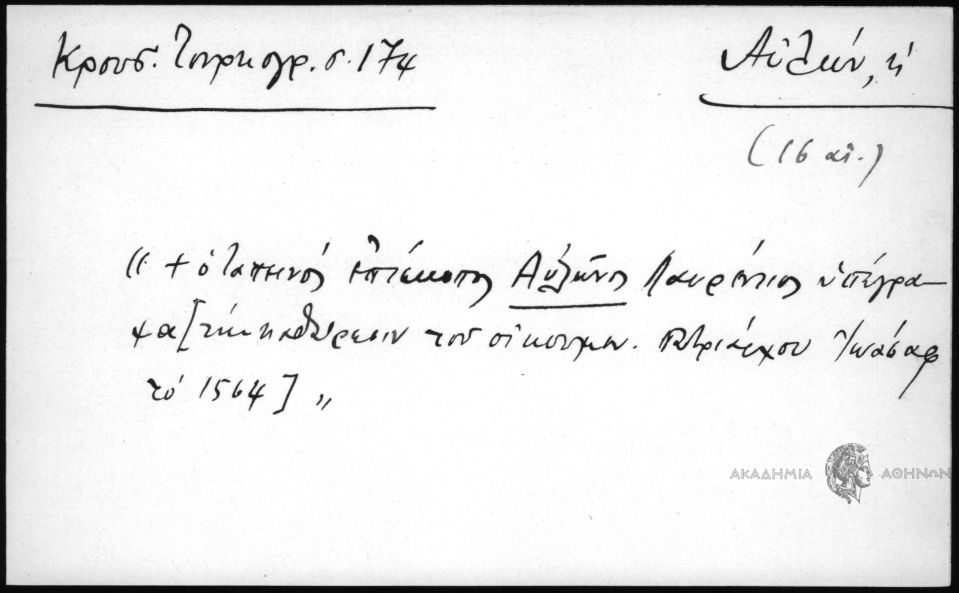 Κρουσ. Τουρκογρ. σ. 174
Αὐλών, ἡ
(16 αἰ.)
(( + ὁ ταπεινός ἐπίσκοπος Αὐλῶνος Λαυρέντιος ὑπέγρα–
ψα [τήν καθαίρεσιν τοῦ οἰκουμεν. Πατριάρχου Ἰωάσαφ
τό 1564] ,,
ΑΚΑΔΗΜΙΑ ΑΘΗΝΩΝ